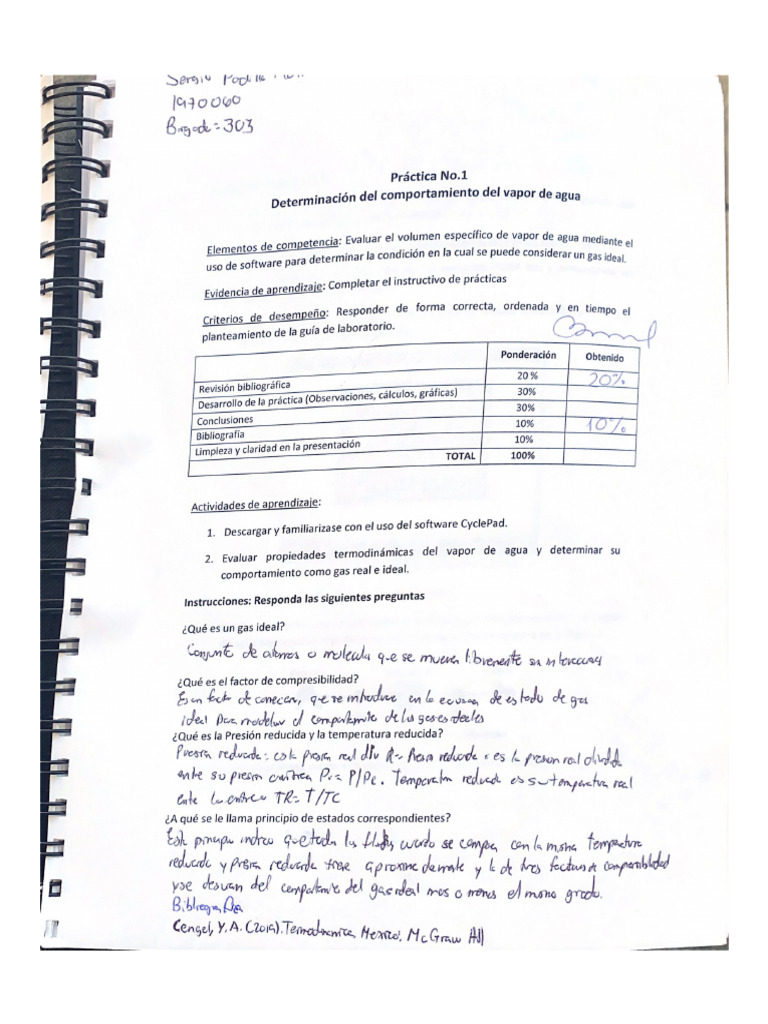 Sergio Padilla
1970060
Brigada = 303
Práctica No.1
Determinación del comportamiento del vapor de agua
Elementos de competencia: Evaluar el volumen específico de vapor de agua mediante el
uso de software para determinar la condición en la cual se puede considerar un gas ideal.
Evidencia de aprendizaje: Completar el instructivo de prácticas
Criterios de desempeño: Responder de forma correcta, ordenada y en tiempo el
planteamiento de la guía de laboratorio.
Ponderación Obtenido
Revisión bibliográfica 20 % 20%
Desarrollo de la práctica (Observaciones, cálculos, gráficas) 30%
Conclusiones 30%
Bibliografía 10% 10%
Limpieza y claridad en la presentación 10%
TOTAL 100%
Actividades de aprendizaje:
1. Descargar y familiarizase con el uso del software CyclePad.
2. Evaluar propiedades termodinámicas del vapor de agua y determinar su
comportamiento como gas real e ideal.
Instrucciones: Responda las siguientes preguntas
¿Qué es un gas ideal?
Conjunto de atomos o molecula que se mueven librenente sin
¿Qué es el factor de compresibilidad?
Es un de que se introduce en la de estado de gas
ideal para modelar el de los gases ideales
¿Qué es la Presión reducida y la temperatura reducida?
Presion reducida: es la presion real
entre su presion critica Pr = P/Pc. Temperatura reducida es su temperatura real
ente la TR= T/TC
¿A qué se le llama principio de estados correspondientes?
Este principio indica que todos los cuando se con la misma temperatura
reducida y presion reducida y de compresibilidad
y se desvian del del gas ideal mas o menos el mismo grado.
Bibliografia
Cengel, Y.A. (2019). Termodinamica, Mexico: McGraw Hill